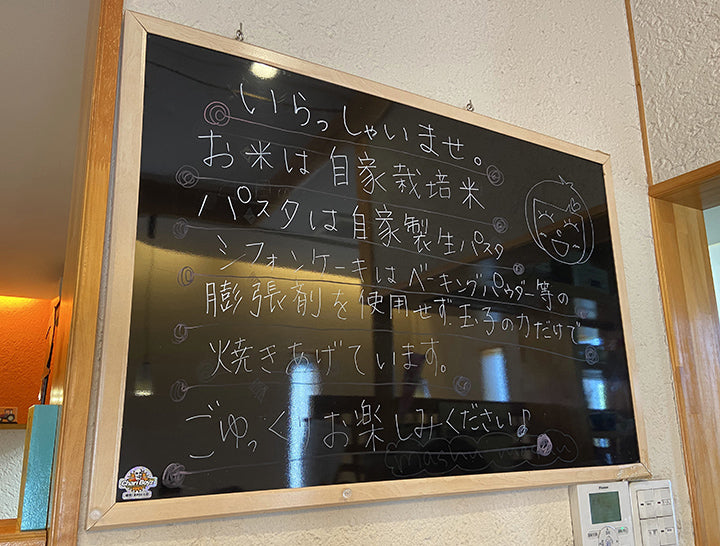 いらっしゃいませ。
お米は自家栽培米
パスタは自家製生パスタ
シフォンケーキはベーキングパウダー等の
膨張剤を使用せず玉子の力だけで
焼きあげています。
ごゆっくりお楽しみください♪
Chari Boyz